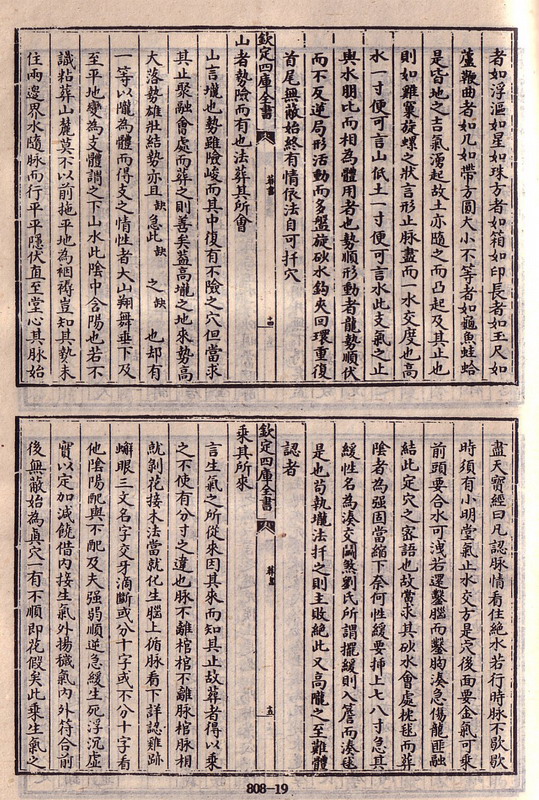 者如浮漚如星如珠方者如箱如印長者如玉尺如
蘆鞭曲者如几如帶方圓大小不等者如龜魚蛙蛤
是皆地之吉氣湧起故土亦隨之而凸起及其止也
則如雞窠旋螺之狀言形止脉盡而一水交度也高
水一寸便可言山低土一寸便可言水此支氣之止
與水朋比而相為體用者也勢順形動者龍勢順伏
而不反逆局形活動而多盤旋砂水鈎夾回環重復
首尾無蔽始終有情依法自可扞穴
欽定四庫全書
葬書
十四
山者勢險而有也法葬其所會
山言壠也勢雖險峻而其中復有不險之穴但當求
其止聚融會處而葬之則善矣蓋高壠之地來勢高
大落勢雄壯結勢亦且缺急此缺之缺也却有
一等以隴為體而得支之情性者大山翔舞垂下及
至平地變為支體謂之下山水此陰中含陽也若不
識粘葬山麓莫不以前拖平地為裀褥豈知其勢未
住兩邊界水隨脉而行平平隱伏直至堂心其脉始
盡天寳經曰凡認脉情看住絶水若行時脉不歇歇
時須有小明堂氣止水交方是穴後面要金氣可乘
前頭要合水可洩若還鑿腦而鑿胸湊急傷龍匪融
結此定穴之宻語也故當求其砂水會處枕毬而葬
陰者為強固當縮下奈何性緩要揷上七八寸急其
緩性名為湊交鬭煞劉氏所謂擺緩則入簷而湊毬
是也苟執壠法扞之則主敗絶此又高隴之至難體
認者
欽定四庫全書
葬書
十五
乘其所來
言生氣之所從來因其來而知其止故葬者得以乘
之不使有分寸之違也脉不離棺棺不離脉棺脉相
就剝花接木法當就化生腦上循脉看下詳認雞跡
蠏眼三文名字交牙滴斷或分十字或不分十字看
他陰陽配與不配及夫強弱順逆急緩生死浮沉虛
實以定加減饒借內接生氣外揚穢氣內外符合前
後無蔽始為真穴一有不順即花假矣此乘生氣之
808-19